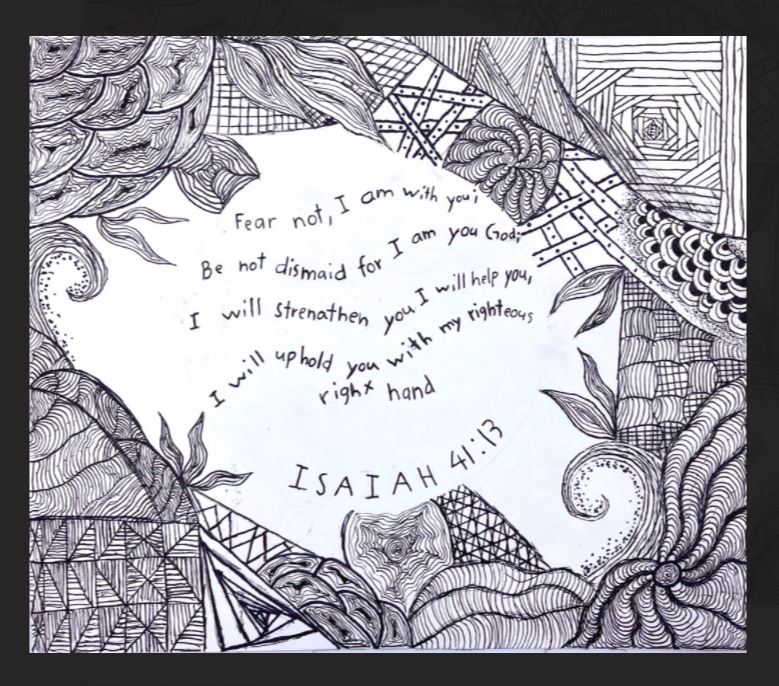 Fear not, I am with you;
Be not dismaid for I am you God;
I will strenathen you I will help you,
I will uphold you with my righteous
right hand
ISAIAH 41:13